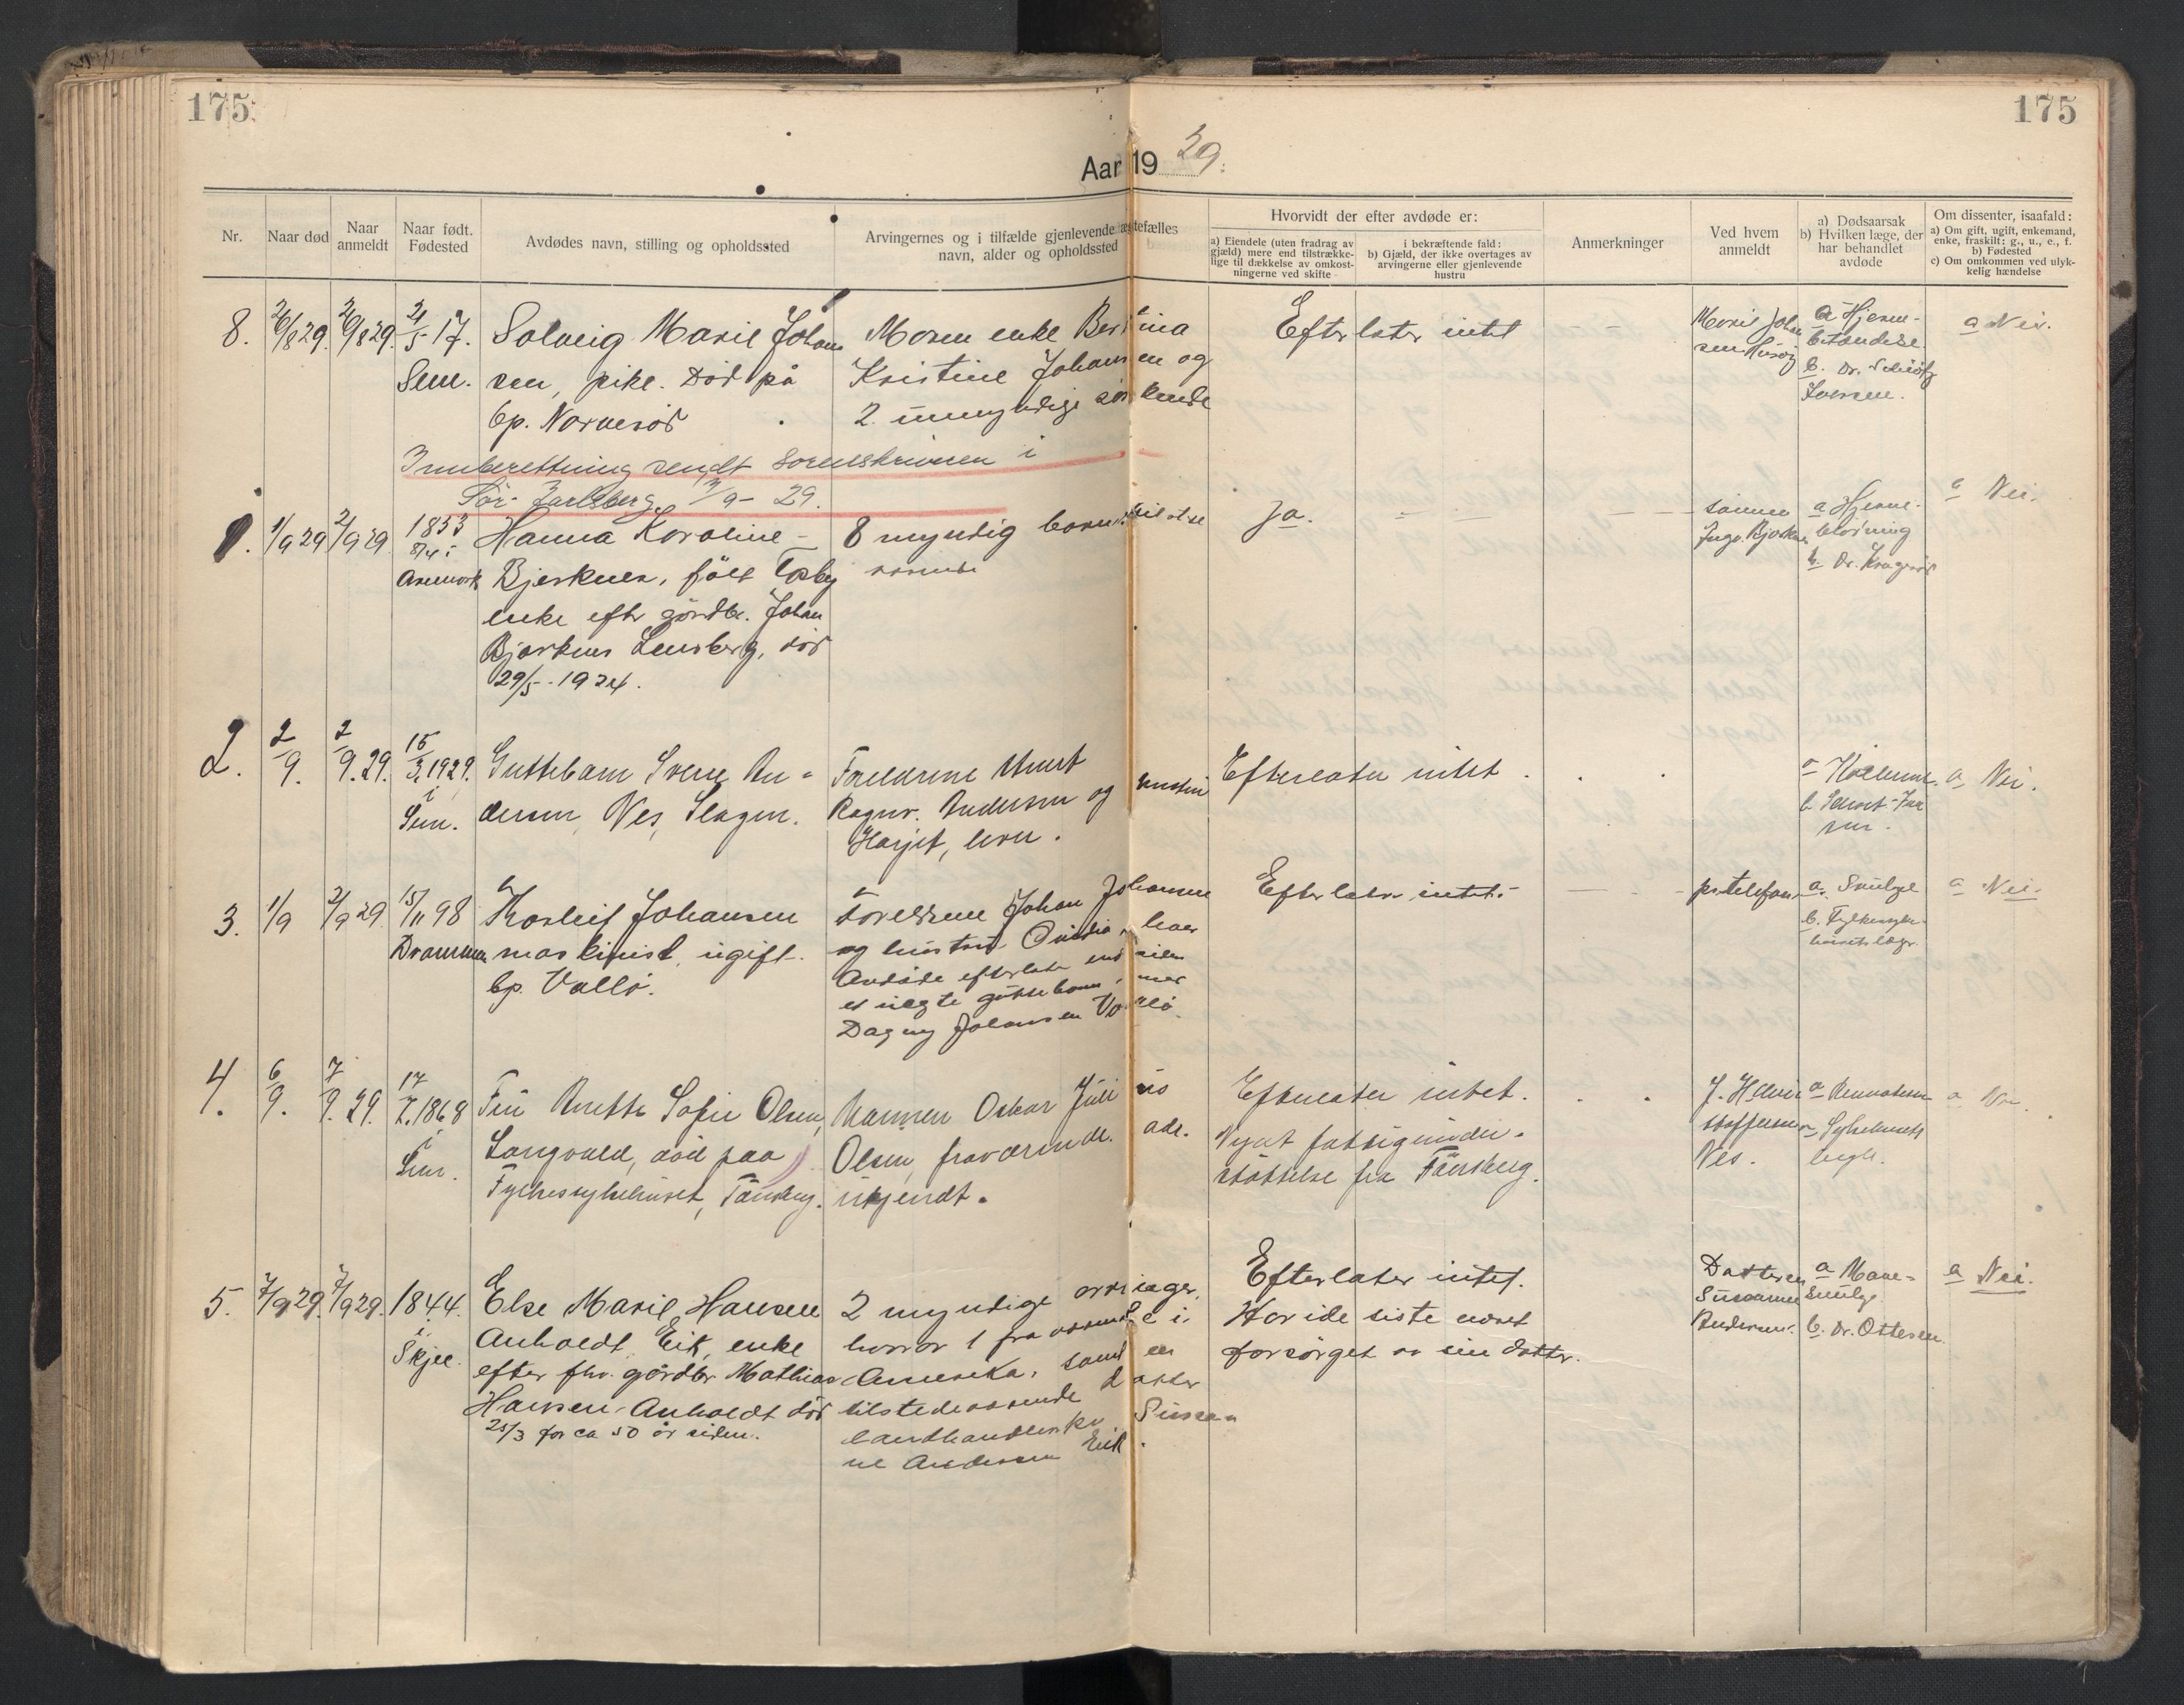 175
175
Aar 19 29.
Nr.
Naar død
Naar
anmeldt
Naar født.
Fødested
Avdødes navn, stilling og opholdssted
Arvingernes og i tilfælde gjenlevende ægtefælles
navn, alder og opholdssted
Hvorvidt der efter avdøde er:
a) Eiendele (uten fradrag av
gjæld) mere end tilstrække-
lige til dækkelse av omkost-
ningerne ved skifte
i bekræftende fald:
b) Gjæld, der ikke overtages av
arvingerne eller gjenlevende
hustru
Anmerkninger
Ved hvem
anmeldt
a) Dødsaarsak
b) Hvilken læge, der
har behandlet
avdøde
Om dissenter, isaafald:
a) Om gift, ugift, enkemand,
enke, fraskilt: g., u., e., f.
b) Fødested
c) Om omkommen ved ulyk-
kelig hændelse
8.
26/8 29.
29/8 29.
21/5 17.
Sem.
Solveig Marie Johan
sen, pike. Død på
bp. Nornesös
Moren enke Bertina
Kristine Johansen og
2 umyndige söskende
Efterlater intet
Marie Johan
sen Husöy
a Hjerne-
betændelse.
b. Dr. Schiötz
Iversen.
a Nei.
Innberettning sendt Sorenskriveren i
Sör-Jarlsberg 2/9-29.
1.
1/9 29
2/9 29
1853
8/4 i
Aremark
Hanna Karoline
Bjerknes, född Tosby
enke eftr gårdbr. Johan
Bjerknes Lensberg, död
29/5-1924.
8 myndig barn tilstde
værende
Ja.
sönnen
Ingv. Bjerknes
a Hjerne-
blödning
b. Dr. Kragerös
a Nei.
2.
2/9.
2/9. 29.
15/3. 1929.
i
Sem.
Guttebarn Sverre An-
dersen, Ves, Slagen.
Forældrene
Ragnv. Andersen og hustru
Harjet, lever.
Efterlater intet.
a
b. Schiöt-Iver
sen.
a, Nei.
3.
1/9
2/9 29
15/11 98
Drammen
Thorleif Johansen
maskinist, ugift.
bp. Vallö.
Foreldrene Johan Johansen
og hustru
Avdöde efterlater
et uegte guttebarn, mor
Dagny Johansen Vallö.
Efterlater intet.
pr. telefon.
a.
b. Fylkessyke-
husets læge.
a Nei.
4.
6/9.
7/9. 29.
17/7. 1868
i
Sem.
Fru Anette Sofie Olsen,
Langvald, död paa
Fylkessykehuset, Tönsberg.
Mannen Oskar Julius
Olsen, fraværende. adr.
ukjendt.
Efterlater intet.
Nydt fattigunder-
stöttelse fra Tönsberg.
J. Henrie
stoffersen
Ves.
a
Sykehusets
legh.
a Nei.
5.
7/9 29.
7/9 29.
1844.
i
Skjee.
Else Marie Hansen
Anholdt, Eik, enke
efter fhv. gårdbr Mathias
Hansen-Anholdt död
25/3 for ca 50 år siden.
2 myndige arvinger,
hvorav 1 fraværende i
Amerika, samt en
tilstedeværende datter
landhandlerske Susan-
ne Andersen Eik.
Efterlater intet.
Har i de siste været
forsörget av sin datter.
Datteren
Susanne
Andersen.
a Mave-
svulge
b. Dr. Ottesen.
a Nei.